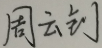 周云钊